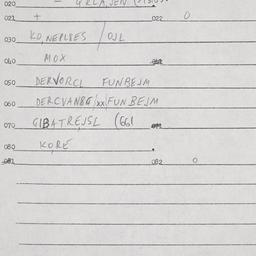 020
021 + 022 0
030 KO, NERLBES / OJL
040 MOX
050 DERVORCI FUNBEJM
060 DERCVANBG/xx/FUNBEJM
070 GIBATREJSL (GGI
080 KORE
081 082 0